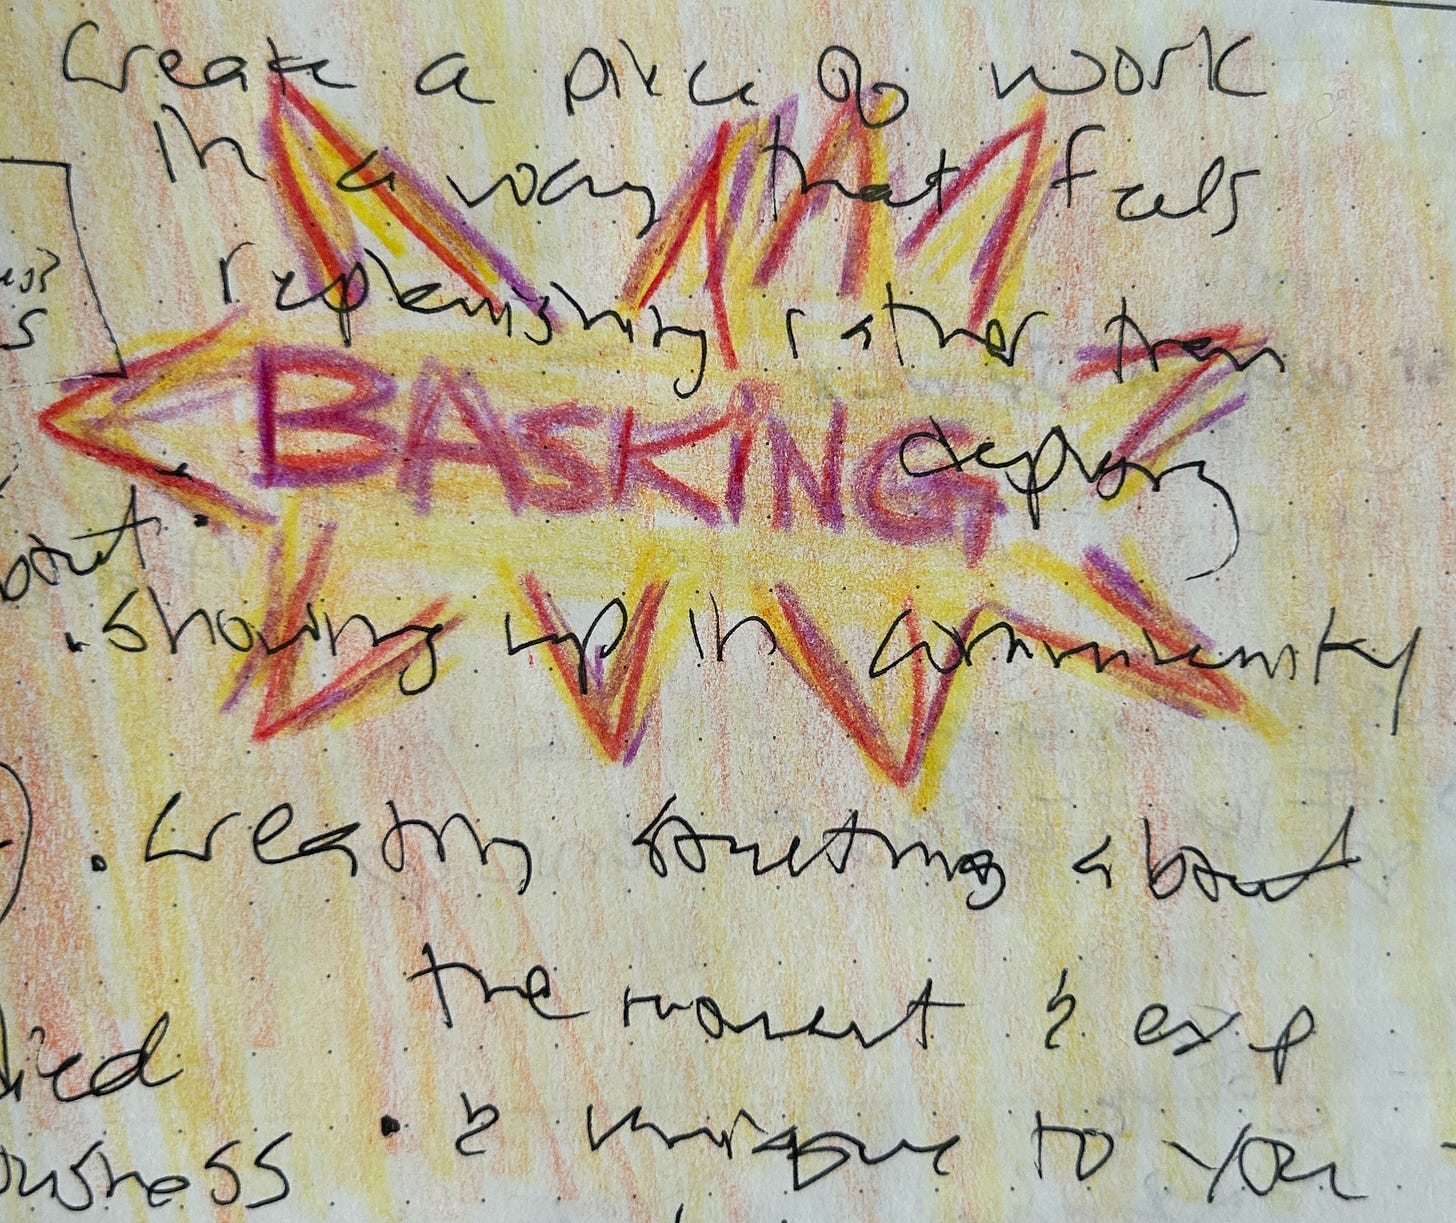 Create a piece of work
in a way that feels
replenishing rather than
BASKING
depleting
bout
• showing up in community
• creating something about
the moment & exp
• & unique to you
ousness